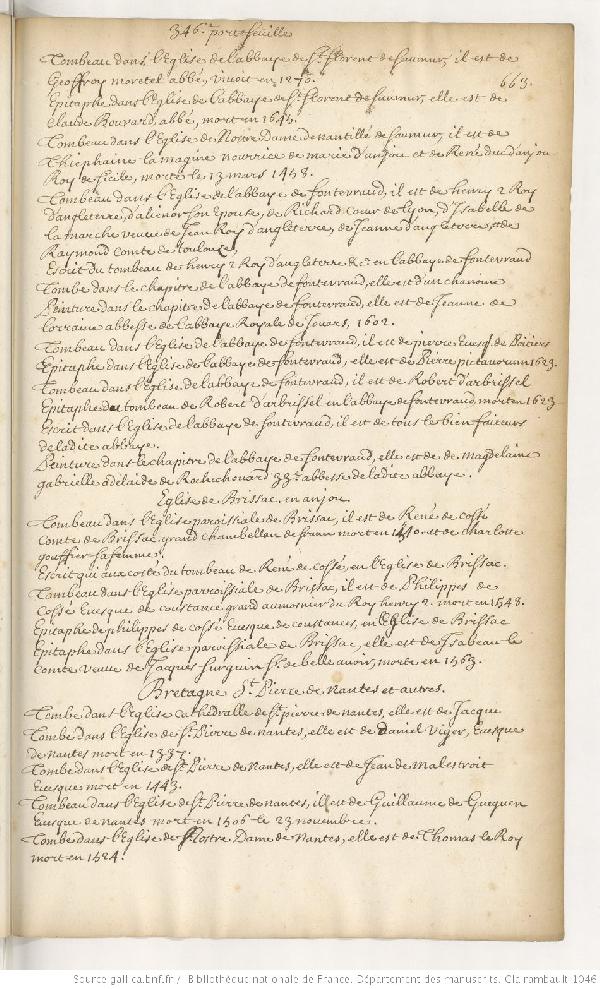 346.e portefeuille
Tombeau dans l'Eglise de l'abbaye de St. florent de Saumur, il est de
Geoffroy moretel abbé, vivoit en 1270.
663.
Epitaphe dans l'Eglise de l'abbaye de St. florent de Saumur, elle est de
Claude Bouvard, abbé, mort en 1645.
Tombeau dans l'Eglise de Notre Dame de nantillé de Saumur, il est de
Thiephaine la magine nourrice de marie d'anjou et de René duc d'anjou
Roy de Sicile, morte le 13 mars 1458.
Tombeau dans l'Eglise de l'abbaye de fontevraud, il est de henry 2 Roy
d'angleterre, d'alienor son Epouse, de Richard Cœur de Lyon, d'Isabelle de
la marche veuve de Jean Roy d'angleterre, de Jeanne d'angleterre, de
Raymond Comte de toulouze,
Escrit du tombeau de henry 2 Roy d'angleterre &c. en l'abbaye de fontevraud
Tombe dans le chapitre de l'abbaye de fontevraud, elle est d'un chanoine
Peinture dans le chapitre de l'abbaye de fontevraud, elle est de Jeanne de
Lorraine abbesse de l'abbaye Royale de Jouars, 1602.
Tombeau dans l'Eglise de l'abbaye de fontevraud, il est de pierre Evesq. de Poitiers
Epitaphe dans l'Eglise de l'abbaye de fontevraud, elle est de Pierre pictavorum 1623.
Tombeau dans l'Eglise de l'abbaye de fontevraud, il est de Robert d'arbrissel
Epitaphe du tombeau de Robert d'arbrissel en l'abbaye de fontevraud, mort en 1623
Escrit dans l'Eglise de l'abbaye de fontevraud, il est de tous les bien faicteurs
de ladite abbaye.
Peinture dans le chapitre de l'abbaye de fontevraud, elle est de de magdelaine
gabrielle adelaide de Rochechouard 33e abbesse de ladite abbaye.
Eglise de Brissac, en anjou
Tombeau dans l'Eglise paroissiale de Brissac, il est de René de cossé
Comte de Brissac, grand chambellan de france mort en 1540 et de charlotte
gouffier sa femme.
Escrit qui aux costé du tombeau de René de cossé, en l'Eglise de Brissac.
Tombeau dans l'Eglise parroissiale de Brissac, il est de Philippes de
Cossé Evesque de coustance grand aumosnier du Roy henry 2. mort en 1548.
Epitaphe de philippes de cossé Evesque de coustances, en l'Eglise de Brissac
Epitaphe dans l'Eglise parroissiale de Brissac, elle est de Isabeau le
Comte veuve de Jacques Surguin Sr. de belle auvoir, morte en 1563.
Bretagne St. Pierre de nantes et autres.
Tombe dans l'Eglise Cathedralle de St. pierre de nantes, elle est de Jacque
Tombe dans l'Eglise de St. Pierre de nantes, elle est de Daniel Viger, Evesque
de nantes mort en 1337.
Tombe dans l'Eglise de St. Pierre de Nantes, elle est de Jean de malestroit
Evesque mort en 1443.
Tombeau dans l'Eglise de St. Pierre de nantes, il est de Guillaume de Gueguen
Evesque de nantes mort en 1506 le 23 novembre.
Tombe dans l'Eglise de Nostre Dame de Nantes, elle est de Thomas le Roy
mort en 1524.
Source gallica.bnf.fr / Bibliothèque nationale de France. Département des manuscrits. Clairambault 1046